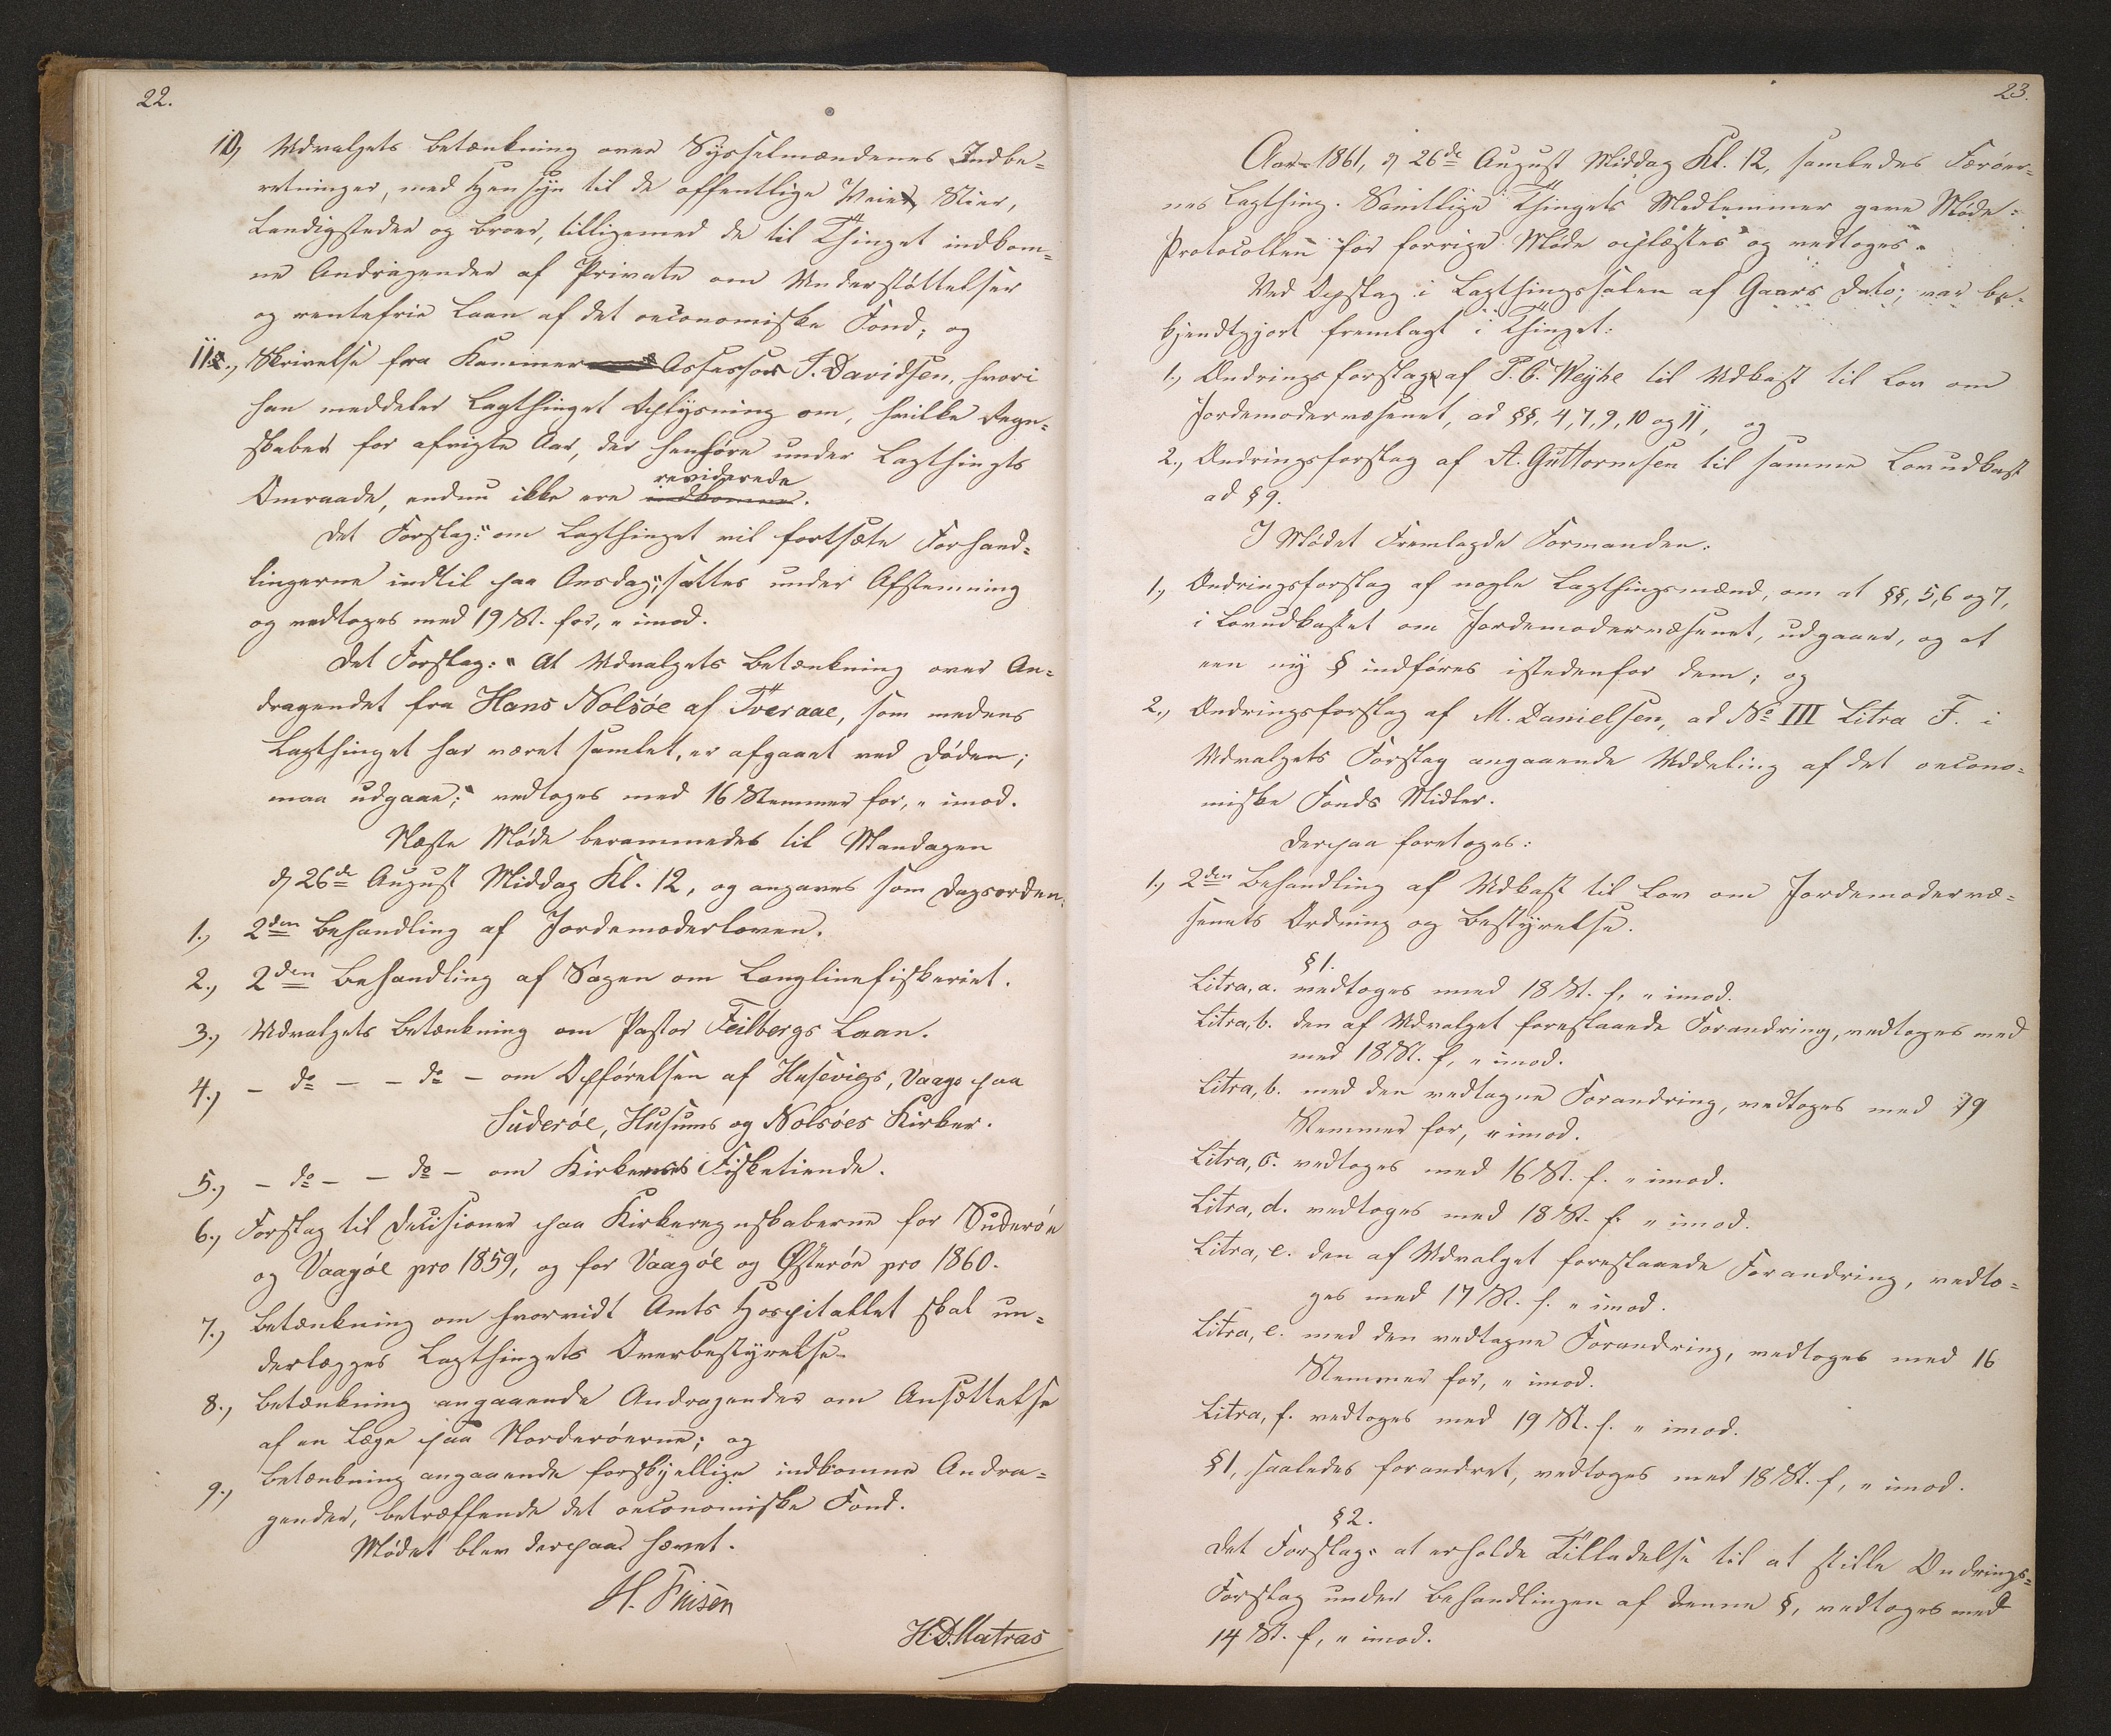 22.
10, Udvalgets Betænkning over Sysselmændenes Indbe-
retninger, med Hensyn til de offentlige Veie, Stier,
Landigsteder og Broer, tilligemed de til Thinget indkom-
ne Andragender af Private om Understøttelser
og rentefrie Laan af det oeconomiske Fond; og
11., Skrivelse fra Kammer Assessor J. Davidsen, hvori
han meddeler Lagthinget Oplysning om, hvilke Regn-
skaber for afvigte Aar, der henhøre under Lagthingts
Omraade, endnu ikke ere indkomne reviderede.
Det Forslag: "om Lagthinget vil fortsæte Forhand-
lingerne indtil paa Onsdag", sattes under Afstemning
og vedtoges med 19 St. for, " imod.
Det Forslag: "At Udvalgets Betænkning over An-
dragendet fra Hans Nolsøe af Tveraae, som medens
Lagthinget har været samlet, er afgaaet ved Døden;
maa udgaae;" vedtoges med 16 Stemmer for, " imod.
Næste Møde berammedes til Mandagen
d 26de August Middag Kl. 12, og angaves som Dagsorden:
1., 2den Behandling af Jordemoderloven.
2., 2den Behandling af Sagen om Langlinefiskeriet.
3., Udvalgets Betænkning om Pastor Feilbergs Laan.
4., - do - - do - om Opførelsen af Husevigs, Vaags paa
Suderøe, Husums og Nolsøes Kirker.
5., - do - - do - om Kirkernes Fisketiende.
6., Forslag til Decisioner paa Kirkeregnskaberne for Suderøe
og Vaagøe pro 1859, og for Vaagøe og Østerøe pro 1860.
7., Betænkning om hvorvidt Amts Hospitallet skal un-
derlægges Lagthingets Overbestyrelse.
8., Betænkning angaaende Andragender om Ansættelse
af en Læge paa Norderøerne; og
9., Betænkning angaaende forskjellige indkomne Andra-
gender, betræffende det oeconomiske Fond.
Mødet blev derpaa hævet.
H. Finsen
H.D. Matras
23.
Aar 1861, d 26de August Middag Kl. 12, samledes Færøer-
nes Lagthing. Samtlige Thingets Medlemmer gave Møde.
Protocollen for forrige Møde oplæstes og vedtoges.
Ved Opslag i Lagthingssalen af Gaars Dato, var be-
kjendtgjort fremlagt i Thinget:
1., Ændringsforslag af P.C. Weyhe til Udkast til Lov om
Jordemodervæsenet, ad §§. 4, 7, 9, 10 og 11, og
2., Ændringsforslag af A. Guttormsen til samme Lovudkast
ad § 9.
I Mødet Fremlagde Formanden:
1., Ændringsforslag af nogle Lagthingsmænd, om at §§, 5, 6 og 7,
i Lovudkastet om Jordemodervæsenet, udgaaer, og at
een ny § indføres istedenfor dem; og
2., Ændringsforslag af M. Danielsen, ad No III Litra F. i
Udvalgets Forslag angaaende Uddeling af det oecono-
miske Fonds Midler.
Derpaa foretoges:
1., 2den Behandling af Udkast til Lov om Jordemodervæ-
senets Ordning og Bestyrelse.
§ 1.
Litra, a. vedtoges med 18 St. f, " imod.
Litra, b. den af Udvalget foreslaaede Forandring, vedtoges med
med 18 St. f, " imod.
Litra, b. med den vedtagne Forandring, vedtoges med 19
Stemmer for, " imod.
Litra, c. vedtoges med 16 St. f. " imod.
Litra, d. vedtoges med 18 St. f. " imod.
Litra, e. den af Udvalget foreslaaede Forandring, vedto-
ges med 17 St. f. " imod.
Litra, e. med den vedtagne Forandring, vedtoges med 16
Stemmer for, " imod.
Litra, f. vedtoges med 19 St. f. " imod.
§ 1, saaledes forandret, vedtoges med 18 St. f, " imod.
§ 2.
Det Forslag: at erholde Tilladelse til at stille Ændrings-
Forslag under Behandlingen af denne §, vedtoges med
14 St. f, " imod.